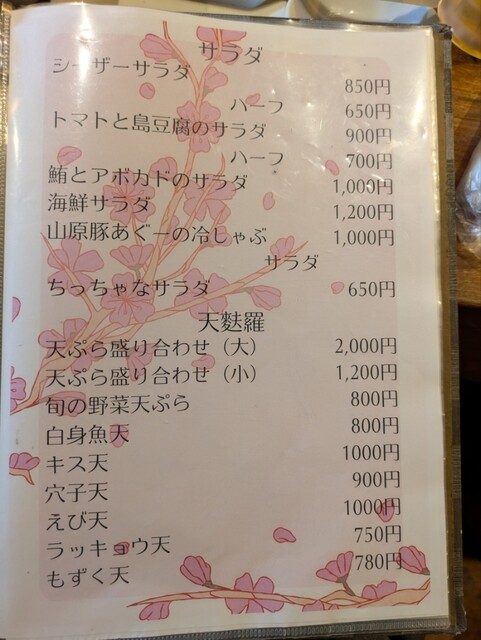 サラダ
シーザーサラダ 850円
ハーフ 650円
トマトと島豆腐のサラダ 900円
ハーフ 700円
鮪とアボカドのサラダ 1,000円
海鮮サラダ 1,200円
山原豚あぐーの冷しゃぶ 1,000円
サラダ
ちっちゃなサラダ 650円
天麩羅
天ぷら盛り合わせ（大） 2,000円
天ぷら盛り合わせ（小） 1,200円
旬の野菜天ぷら 800円
白身魚天 800円
キス天 1000円
穴子天 900円
えび天 1000円
ラッキョウ天 750円
もずく天 780円